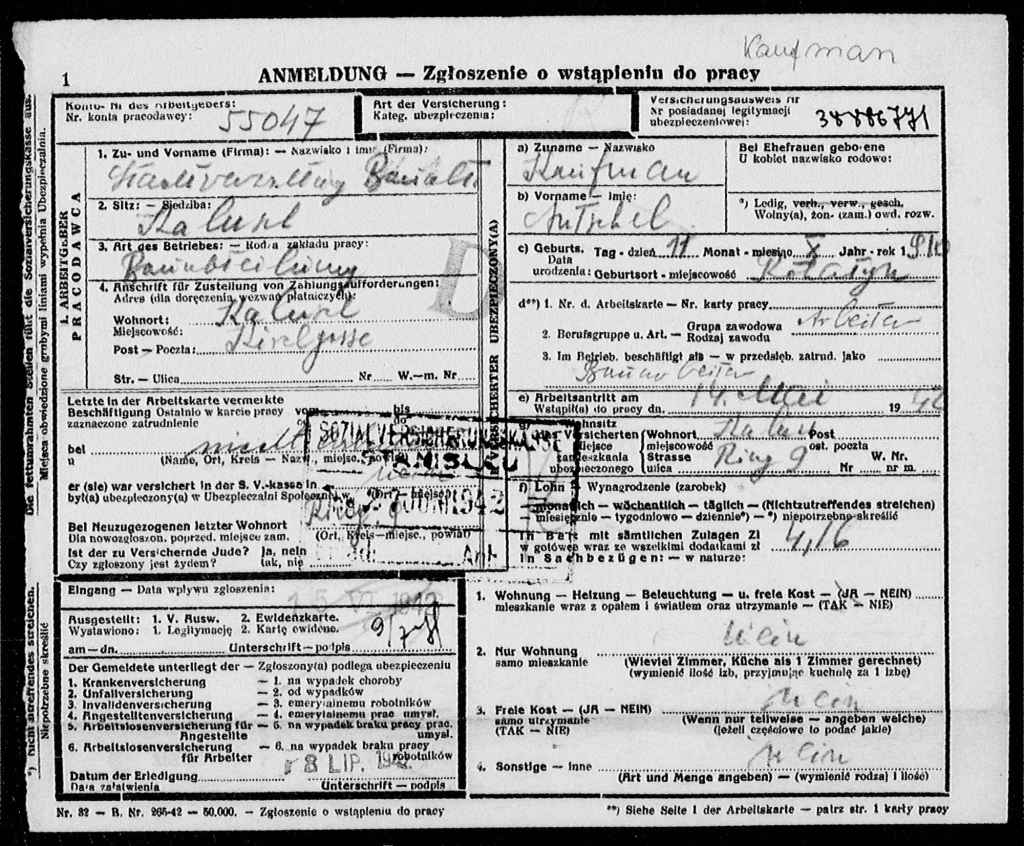 Kaufman
1
ANMELDUNG — Zgłoszenie o wstąpieniu do pracy
Konto- Nr des Arbeitgebers:
Nr. konta pracodawcy: 55047
Art der Versicherung:
Kateg. ubezpieczenia:
Versicherungsausweis Nr
Nr posiadanej legitymacji
ubezpieczeniowej: 38886771
I. ARBEITGEBER
PRACODAWCA
1. Zu- und Vorname (Firma): — Nazwisko i imię (Firma):
2. Sitz: — Siedziba:
3. Art des Betriebes: — Rodzaj zakładu pracy:
4. Anschrift für Zustellung von Zahlungsaufforderungen:
Adres (dla doręczenia wezwań płatniczych):
Wohnort:
Miejscowość:
Post — Poczta:
Str. — Ulica Nr W.—m. Nr.
Letzte in der Arbeitskarte vermerkte
Beschäftigung Ostatnio w karcie pracy
zaznaczone zatrudnienie
von bis
do
bel
u
(Name, Ort, Kreis — Nazw., miejsc.
er (sie) war versichert in der S. V.-kasse in
był(a) ubezpieczony(a) w Ubezpieczalni Społecznej w
(Ort — miejsc.
Bei Neuzugezogenen letzter Wohnort
Dla nowozgłoszon. poprzed. miejsce zam.
(Ort, Kreis—miejsc., powiat)
Ist der zu Versichernde Jude? Ja, nein
Czy zgłoszony jest żydem? tak, nie
SOZIALVERSICHERUNGSKASSE
STANISLAU
JUNI 1942
VERSICHERTER UBEZPIECZONY(A)
a) Zuname — Nazwisko
Kaufman
Bei Ehefrauen geborene
U kobiet nazwisko rodowe:
b) Vorname — Imię:
*) Ledig, verh., verw., gesch.
Wolny(a), żon- (zam.) owd. rozw.
c) Geburts. Tag - dzień 11 Monat - miesiąc X Jahr - rok 1910
Data
urodzenia: Geburtsort - miejscowość
d**) 1. Nr. d. Arbeitskarte — Nr. karty pracy
2. Berufsgruppe u. Art. — Grupa zawodowa
Rodzaj zawodu
Arbeiter
3. Im Betrieb. beschäftigt als — w przedsięb. zatrud. jako
Bauarbeiter
e) Arbeitsantritt am
Wstąpił(a) do pracy dn. 14. Mai 1942
Wohnsitz
des Versicherten
Miejsce
zamieszkania
ubezpieczonego
Wohnort Post
miejscowość ost. poczta
Strasse Ring 9 W. Nr.
ulica Nr nr m.
f) Lohn — Wynagrodzenie (zarobek)
— monatlich — wöchentlich — täglich — (Nichtzutreffendes streichen)
— miesięcznie — tygodniowo — dziennie*) — *) niepotrzebne skreślić
in Bets mit sämtlichen Zulagen Zl
w gotówce wraz ze wszelkimi dodatkami zł 4,16
in Sachbezügen: — w naturze:
Eingang — Data wpływu zgłoszenia:
15 VI 1942
Ausgestellt: 1. V. Ausw. 2. Ewidenzkarte.
Wystawiono: 1. Legitymację 2. Kartę ewidenc.
am—dn. Unterschrift—podpis
Der Gemeldete unterliegt der — Zgłoszony(a) podlega ubezpieczeniu
1. Krankenversicherung — 1. na wypadek choroby
2. Unfallversicherung — 2. od wypadków
3. Invalidenversicherung — 3. emerytalnemu robotników
4. Angestelltenversicherung — 4. emerytalnemu prac umysł.
5. Arbeitslosenversicherung für — 5. na wypadek braku pracy prac.
Angestellte umysł.
6. Arbeitslosenversicherung — 6. na wypadek braku pracy
für Arbeiter robotników
8 LIP. 194
Datum der Erledigung
Data załatwienia Unterschrift — podpis
1. Wohnung — Heizung — Beleuchtung — u. freie Kost — (JA — NEIN)
mieszkanie wraz z opałem i światłem oraz utrzymanie — (TAK — NIE)
Nein
2. Nur Wohnung
samo mieszkanie
(Wieviel Zimmer, Küche als 1 Zimmer gerechnet)
(wymienić ilość izb, przyjmując kuchnię za 1 izbę)
Nein
3. Freie Kost — (JA — NEIN)
samo utrzymanie
(TAK — NIE)
(Wenn nur teilweise — angeben welche)
(jeżeli częściowo to podać jakie)
Nein
4. Sonstige — inne
(Art und Menge angeben) — (wymienić rodzaj i ilość)
Nr. 32 — B. Nr. 265-42 — 50.000. — Zgłoszenie o wstąpieniu do pracy
**) Siehe Seite 1 der Arbeitskarte — patrz str. 1 karty pracy
Die fettumrahmten Stellen füllt die Sozialversicherungskasse aus.
Miejsca obwiedzione grubymi liniami wypełnia Ubezpieczalnia.
*) Nicht zutreffendes streichen.
Niepotrzebne skreślić